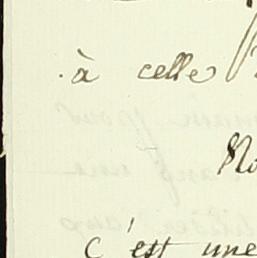 à celle
No
c'est une